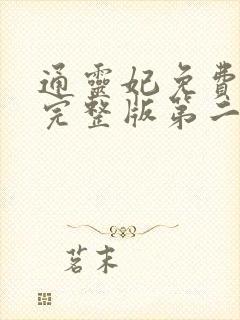 通靈妃免費
完整版第二
茗末